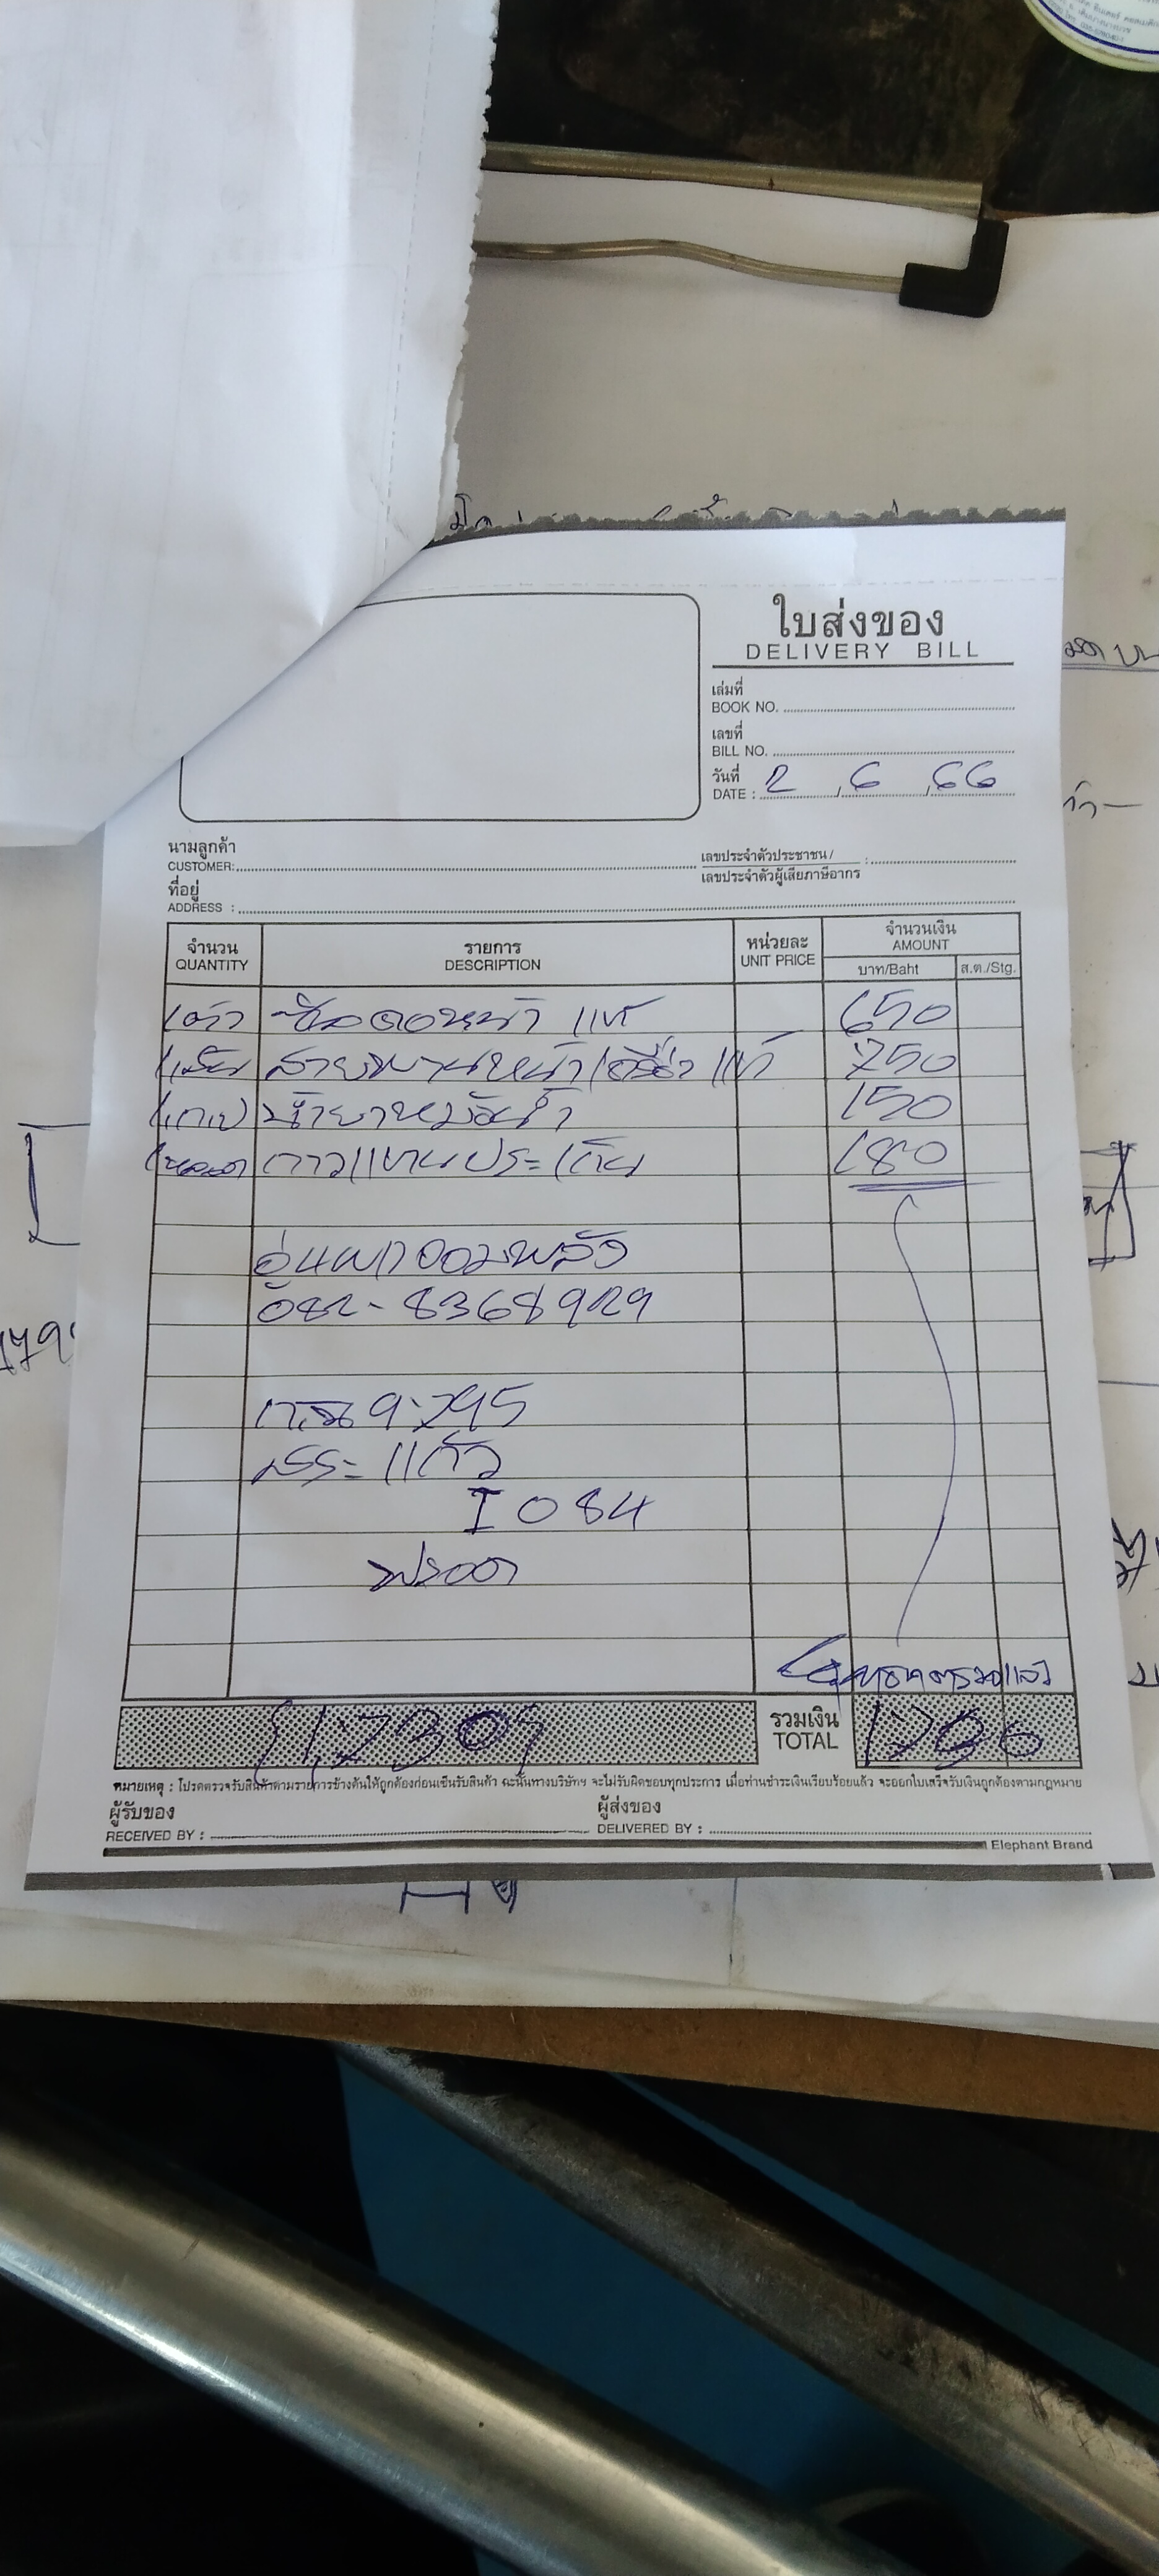 ใบส่งของ
DELIVERY BILL
เล่มที่
BOOK NO.
เลขที่
BILL NO.
วันที่
DATE : 2 / 6 / 66
นามลูกค้า
CUSTOMER:
เลขประจำตัวประชาชน /
เลขประจำตัวผู้เสียภาษีอากร :
ที่อยู่
ADDRESS :
จำนวน รายการ หน่วยละ จำนวนเงิน
QUANTITY DESCRIPTION UNIT PRICE AMOUNT
บาท/Baht ส.ต./Stg.
1ตัว ซีลคอหน้า แท้ 650
1เส้น สายพานหน้าเครื่อง แท้ 750
1แกน น้ำยาหม้อน้ำ 150
1หลอด กาวแทนประเก็น 180
082-8368929
9795
สระแก้ว
084
1,730
รวมเงิน
TOTAL 1730
หมายเหตุ : โปรดตรวจรับสินค้าตามรายการข้างต้นให้ถูกต้องก่อนเซ็นรับสินค้า ฉะนั้นทางบริษัทฯ จะไม่รับผิดชอบทุกประการ เมื่อท่านชำระเงินเรียบร้อยแล้ว จะออกใบเสร็จรับเงินถูกต้องตามกฎหมาย
ผู้รับของ ผู้ส่งของ
RECEIVED BY : DELIVERED BY :
Elephant Brand